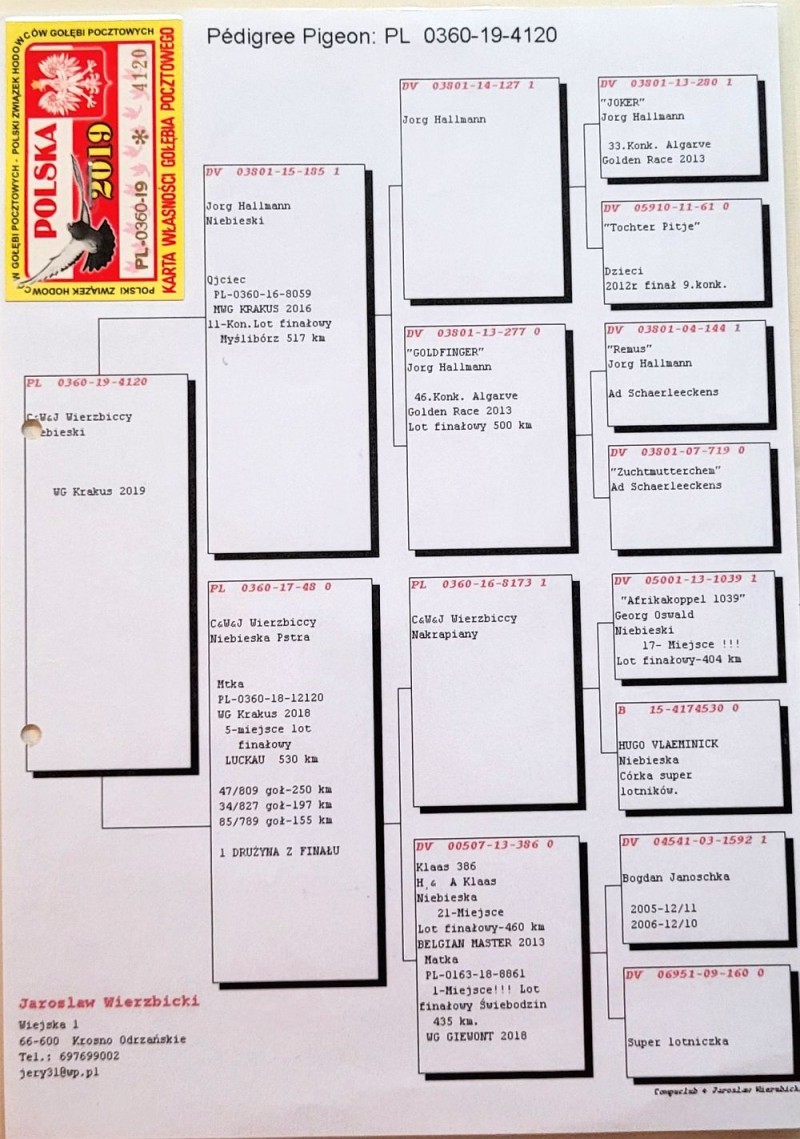 Pédigree Pigeon: PL 0360-19-4120
POLSKI ZWIĄZEK HODOWCÓW GOŁĘBI POCZTOWYCH
POLSKA
2019
PL-0360-19 * 4120
KARTA WŁASNOŚCI GOŁĘBIA POCZTOWEGO
PL 0360-19-4120
C&W&J Wierzbiccy
ebieski
WG Krakus 2019
DV 03801-15-185 1
Jorg Hallmann
Niebieski
Ojciec
PL-0360-16-8059
MWG KRAKUS 2016
11-Kon.Lot finałowy
Myślibórz 517 km
PL 0360-17-48 0
C&W&J Wierzbiccy
Niebieska Pstra
Mtka
PL-0360-18-12120
WG Krakus 2018
5-miejsce lot
finałowy
LUCKAU 530 km
47/809 goł-250 km
34/827 goł-197 km
85/789 goł-155 km
1 DRUŻYNA Z FINAŁU
DV 03801-14-127 1
Jorg Hallmann
DV 03801-13-277 0
"GOLDFINGER"
Jorg Hallmann
46.Konk. Algarve
Golden Race 2013
Lot finałowy 500 km
PL 0360-16-8173 1
C&W&J Wierzbiccy
Nakrapiany
DV 00507-13-386 0
Klaas 386
H, & A Klaas
Niebieska
21-Miejsce
Lot finałowy-460 km
BELGIAN MASTER 2013
Matka
PL-0163-18-8861
1-Miejsce!!! Lot
finałowy Świebodzin
435 km.
WG GIEWONT 2018
DV 03801-13-280 1
"JOKER"
Jorg Hallmann
33.Konk. Algarve
Golden Race 2013
DV 05910-11-61 0
"Tochter Pitje"
Dzieci
2012r finał 9.konk.
DV 03801-04-144 1
"Remus"
Jorg Hallmann
Ad Schaerleeckens
DV 03801-07-719 0
"Zuchtmutterchem"
Ad Schaerleeckens
DV 05001-13-1039 1
"Afrikakoppel 1039"
Georg Oswald
Niebieski
17- Miejsce !!!
Lot finałowy-404 km
B 15-4174530 0
HUGO VLAEMINICK
Niebieska
Córka super
lotników.
DV 04541-03-1592 1
Bogdan Janoschka
2005-12/11
2006-12/10
DV 06951-09-160 0
Super lotniczka
Jaroslaw Wierzbicki
Wiejska 1
66-600 Krosno Odrzańskie
Tel.: 697699002
jery31@wp.pl
Compuclub & Jaroslaw Wierzbick